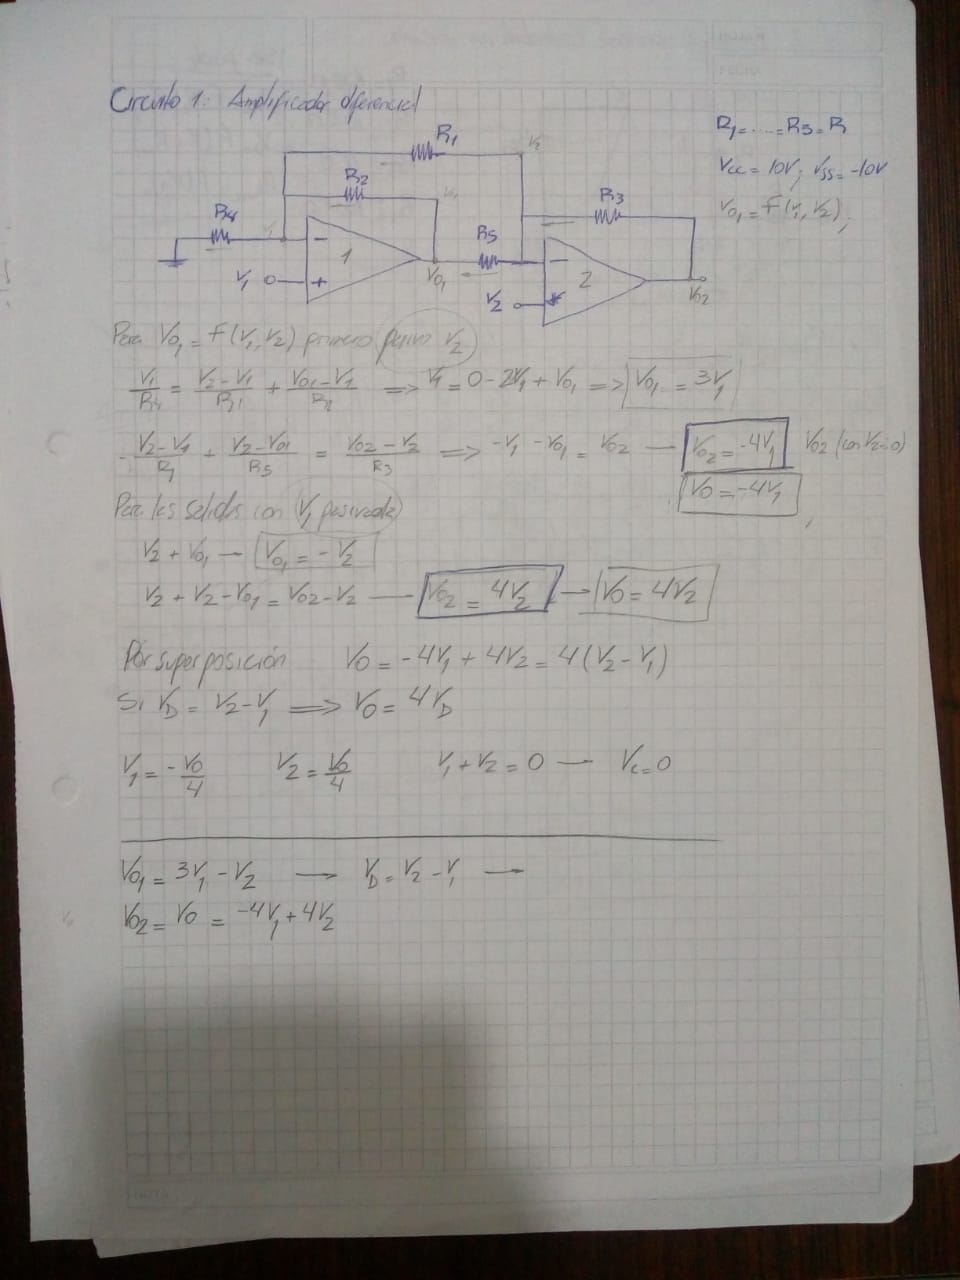 Circuito 1: Amplificador diferencial
R1 = ..... = R5 = R
Vcc = 10V; Vss = -10V
Vo1 = F(V1, V2);
R1
R2
R3
R4
R5
V1
V2
Vo1
Vo2
1
2
-
+
-
+
Para Vo1 = F(V1, V2) primero pasivo V2
V1/R4 = (V2 - V1)/R1 + (Vo1 - V1)/R2 => V1 = 0 - 2V1 + Vo1 => Vo1 = 3V1
(V2 - V1)/R1 + (V2 - Vo1)/R5 = (Vo2 - V2)/R3 => -V1 - Vo1 = Vo2 — Vo2 = -4V1 Vo2 (con V2=0)
Vo = -4V1
Para las salidas con V1 pasivada
V2 + Vo1 — Vo1 = -V2
V2 + V2 - Vo1 = Vo2 - V2 — Vo2 = 4V2 → Vo = 4V2
Por superposición Vo = -4V1 + 4V2 = 4(V2 - V1)
Si VD = V2 - V1 => Vo = 4VD
V1 = -Vo/4 V2 = Vo/4 V1 + V2 = 0 — Vc = 0
Vo1 = 3V1 - V2 → VD = V2 - V1 →
Vo2 = Vo = -4V1 + 4V2